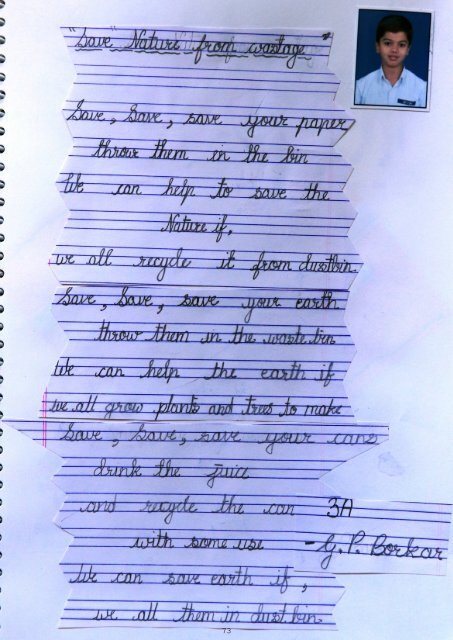 "Save Nature from wastage"
Save, Save, save your paper
throw them in the bin
We can help to save the
Nature if,
we all recycle it from dustbin.
Save, Save, save your earth
throw them in the waste bin
We can help the earth if
we all grow plants and trees to make
Save, Save, save your cans
drink the juice
and recycle the can
3A
with some use
- G. P. Borkar
We can save earth if,
we all them in dust bin.
73